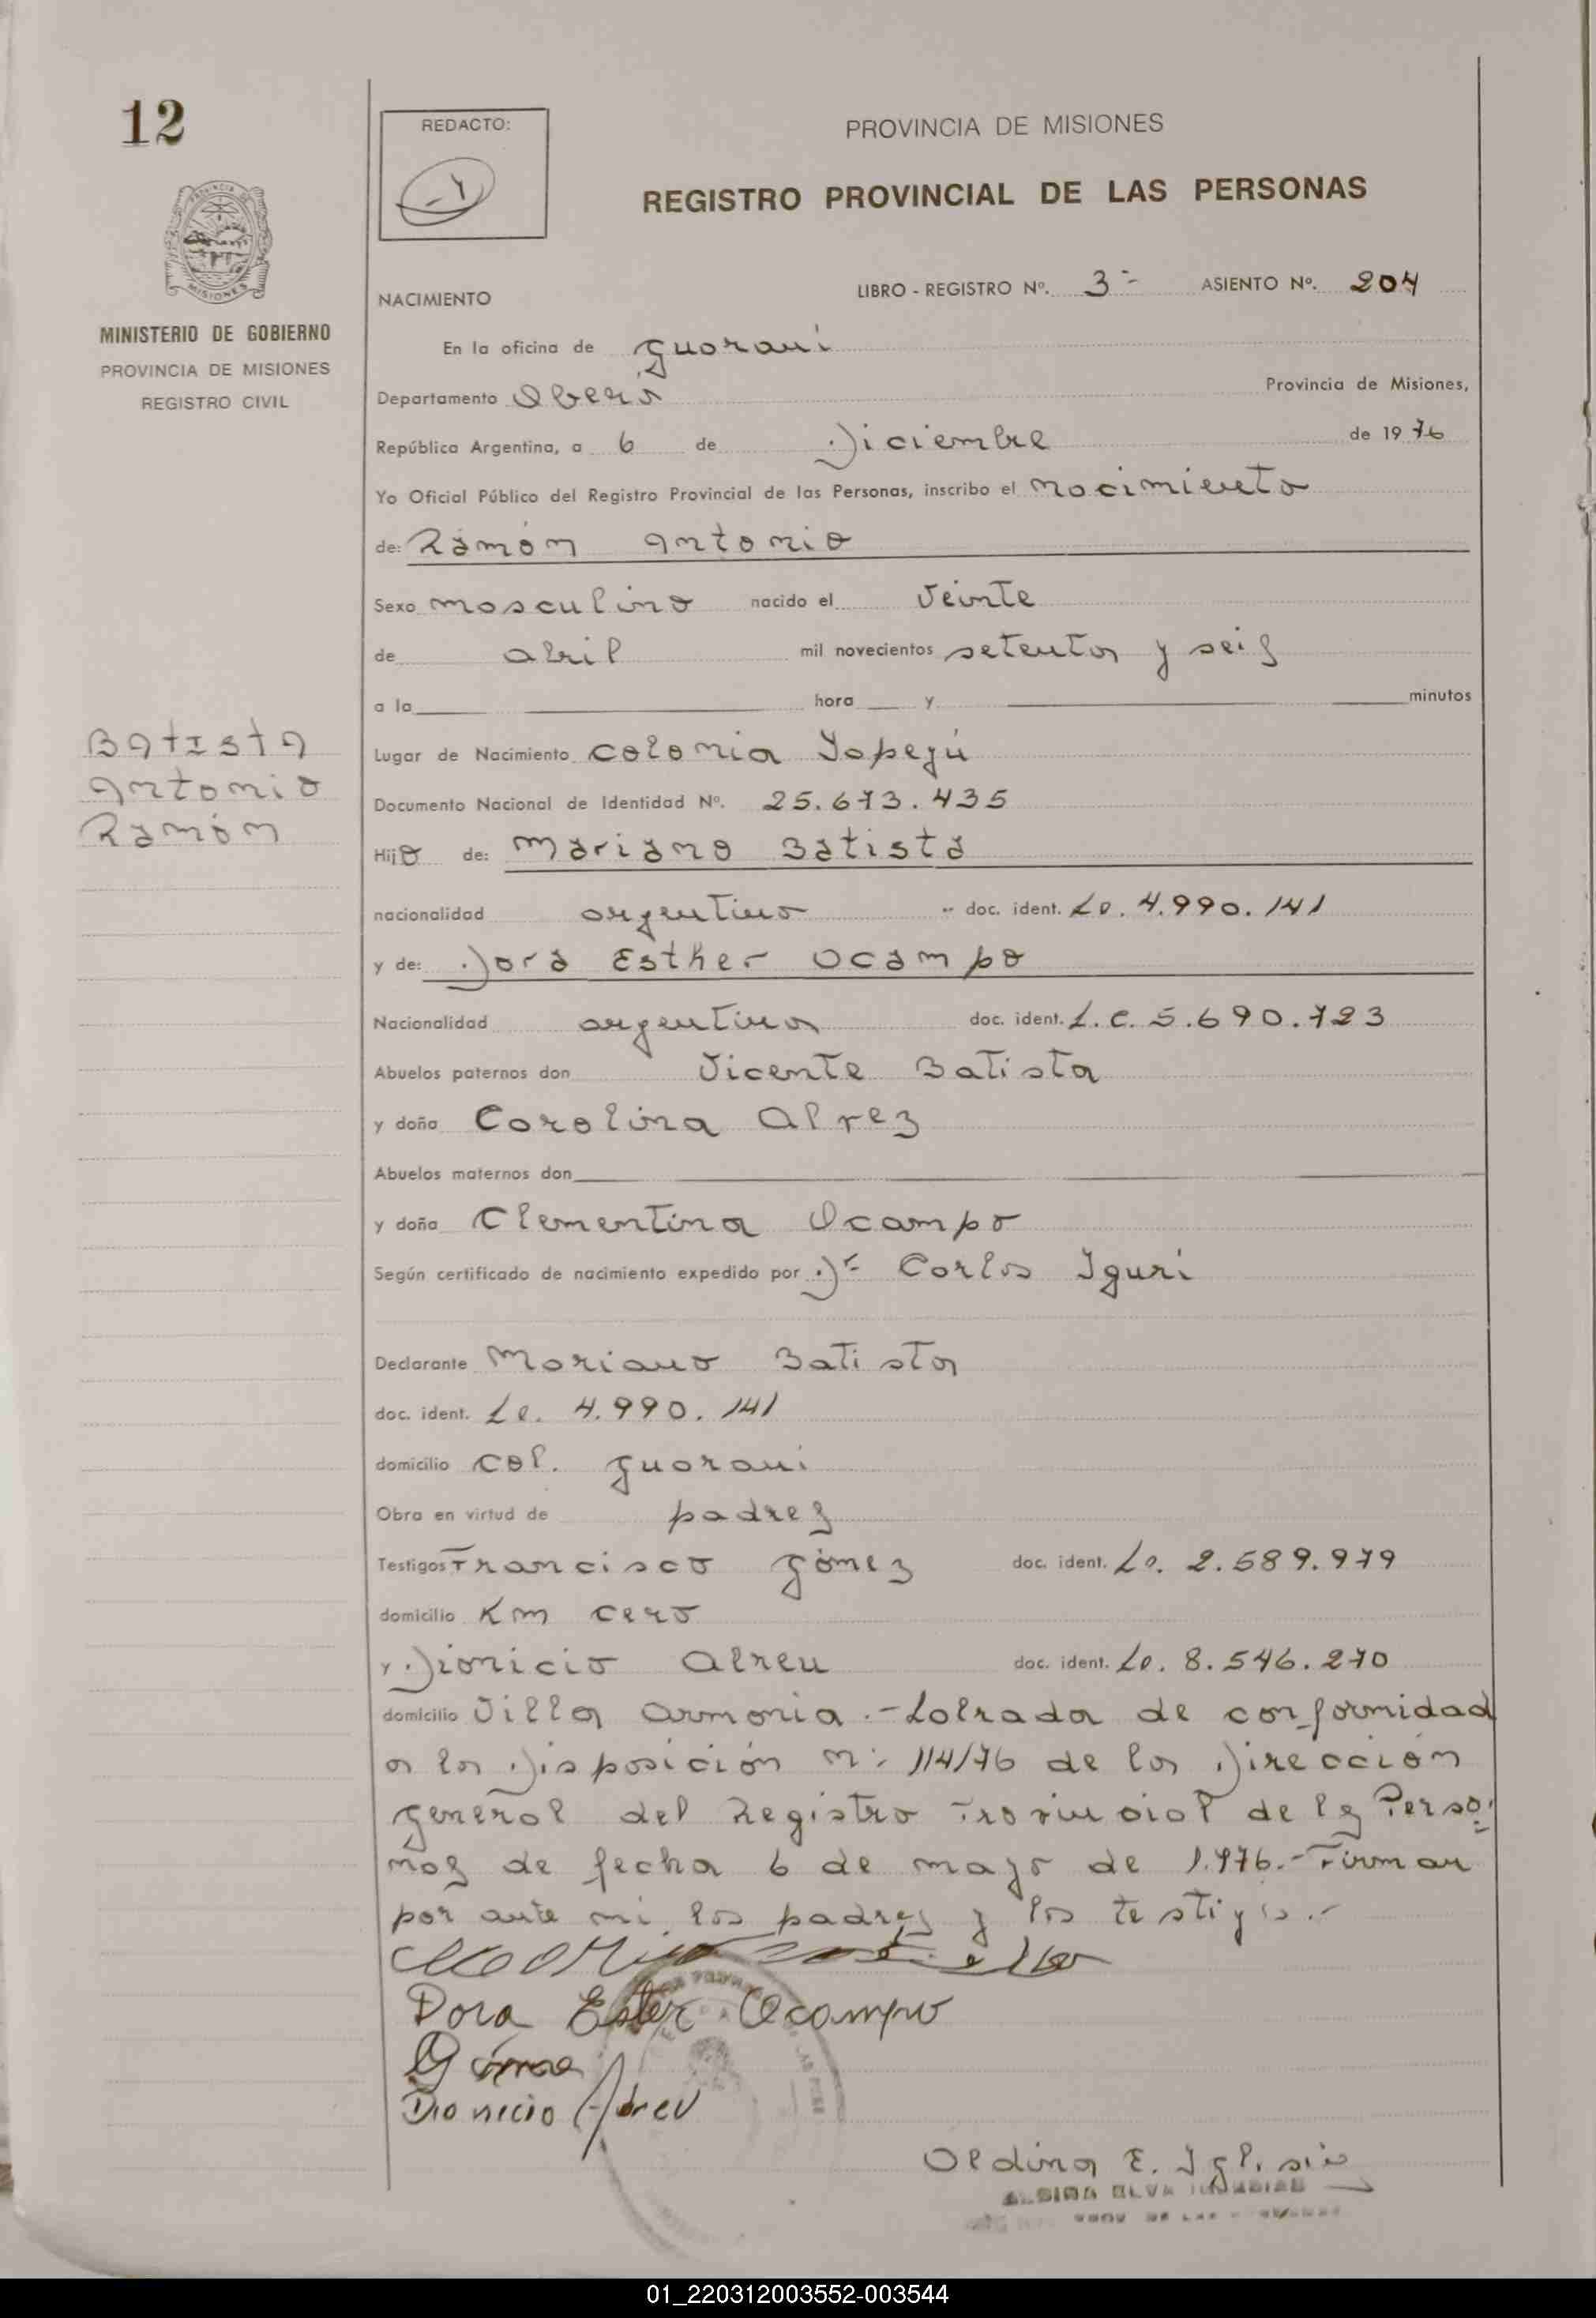 12
REDACTO:
PROVINCIA DE MISIONES
REGISTRO PROVINCIAL DE LAS PERSONAS
MINISTERIO DE GOBIERNO
PROVINCIA DE MISIONES
REGISTRO CIVIL
NACIMIENTO LIBRO - REGISTRO Nº. 3 - ASIENTO Nº. 204
En la oficina de Guaraní
Departamento Oberá Provincia de Misiones,
República Argentina, a 6 de Diciembre de 1976
Yo Oficial Público del Registro Provincial de las Personas, inscribo el nacimiento
de: Ramón Antonio
Sexo masculino nacido el veinte
de abril mil novecientos setenta y seis
a la hora y minutos
Batista
Antonio
Ramón
Lugar de Nacimiento Colonia Yapeyú
Documento Nacional de Identidad Nº. 25.673.435
Hijo de: Mariano Batista
nacionalidad argentino doc. ident. Le. 4.990.141
y de: Dora Esther Ocampo
Nacionalidad argentina doc. ident. L.C. 5.690.723
Abuelos paternos don Vicente Batista
y doña Carolina Alrez
Abuelos maternos don
y doña Clementina Ocampo
Según certificado de nacimiento expedido por Dr Carlos Iguri
Declarante Mariano Batista
doc. ident. Le. 4.990.141
domicilio Col. Guaraní
Obra en virtud de padres
Testigos Francisco Gómez doc. ident. Le. 2.589.979
domicilio Km cero
y Dionicio Abreu doc. ident. Le. 8.546.270
domicilio Villa Armonia.- Labrada de conformidad
a la Disposición n: 114/76 de la Dirección
General del Registro Provincial de las Perso-
nas de fecha 6 de mayo de 1.976.- Firman
por ante mi los padres y los testigos.-
Dora Ester Ocampo
Dionicio Abreu
01_220312003552-003544